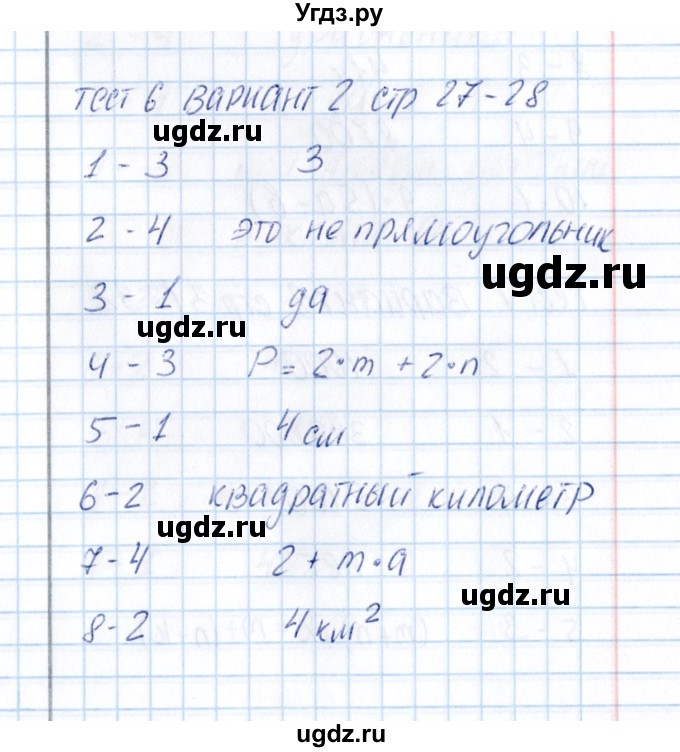 Угдз.ру
тест 6 вариант 2 стр 27-28
ugdz.ru
1 - 3 3
2 - 4 это не прямоугольник
ugdz.ru
3 - 1 да
ugdz.ru
4 - 3 P = 2·m + 2·n
5 - 1 4 см
6 - 2 квадратный километр
ugdz.ru
7 - 4 2 + m·a
ugdz.ru
8 - 2 4 км²
ugdz.ru